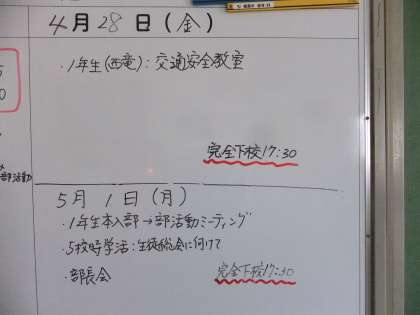 4月28日(金)
・1年生(西竜):交通安全教室
完全下校17:30
部活動
5月1日(月)
・1年生本入部→部活動ミーティング
・5校時学活:生徒総会に向けて
・部長会
完全下校17:30